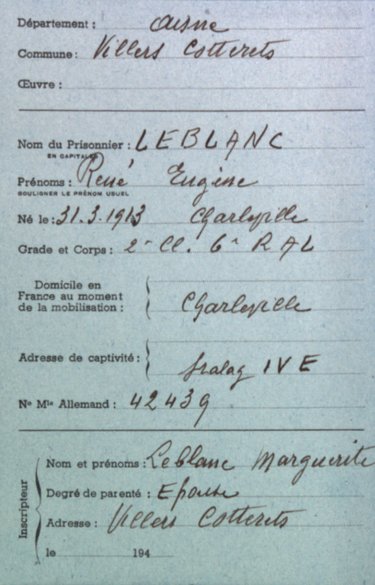 Département : Aisne
Commune : Villers Cotterets
Œuvre :
Nom du Prisonnier : LEBLANC
EN CAPITALES
Prénoms : René Eugène
SOULIGNER LE PRÉNOM USUEL
Né le : 31.3.1913 Charleville
Grade et Corps : 2e Cl. 6e RAL
Domicile en
France au moment
de la mobilisation : Charleville
Adresse de captivité : Stalag IV E
No Mle Allemand : 42439
Inscripteur
Nom et prénoms : Leblanc Marguerite
Degré de parenté : Epouse
Adresse : Villers Cotterets
le 194